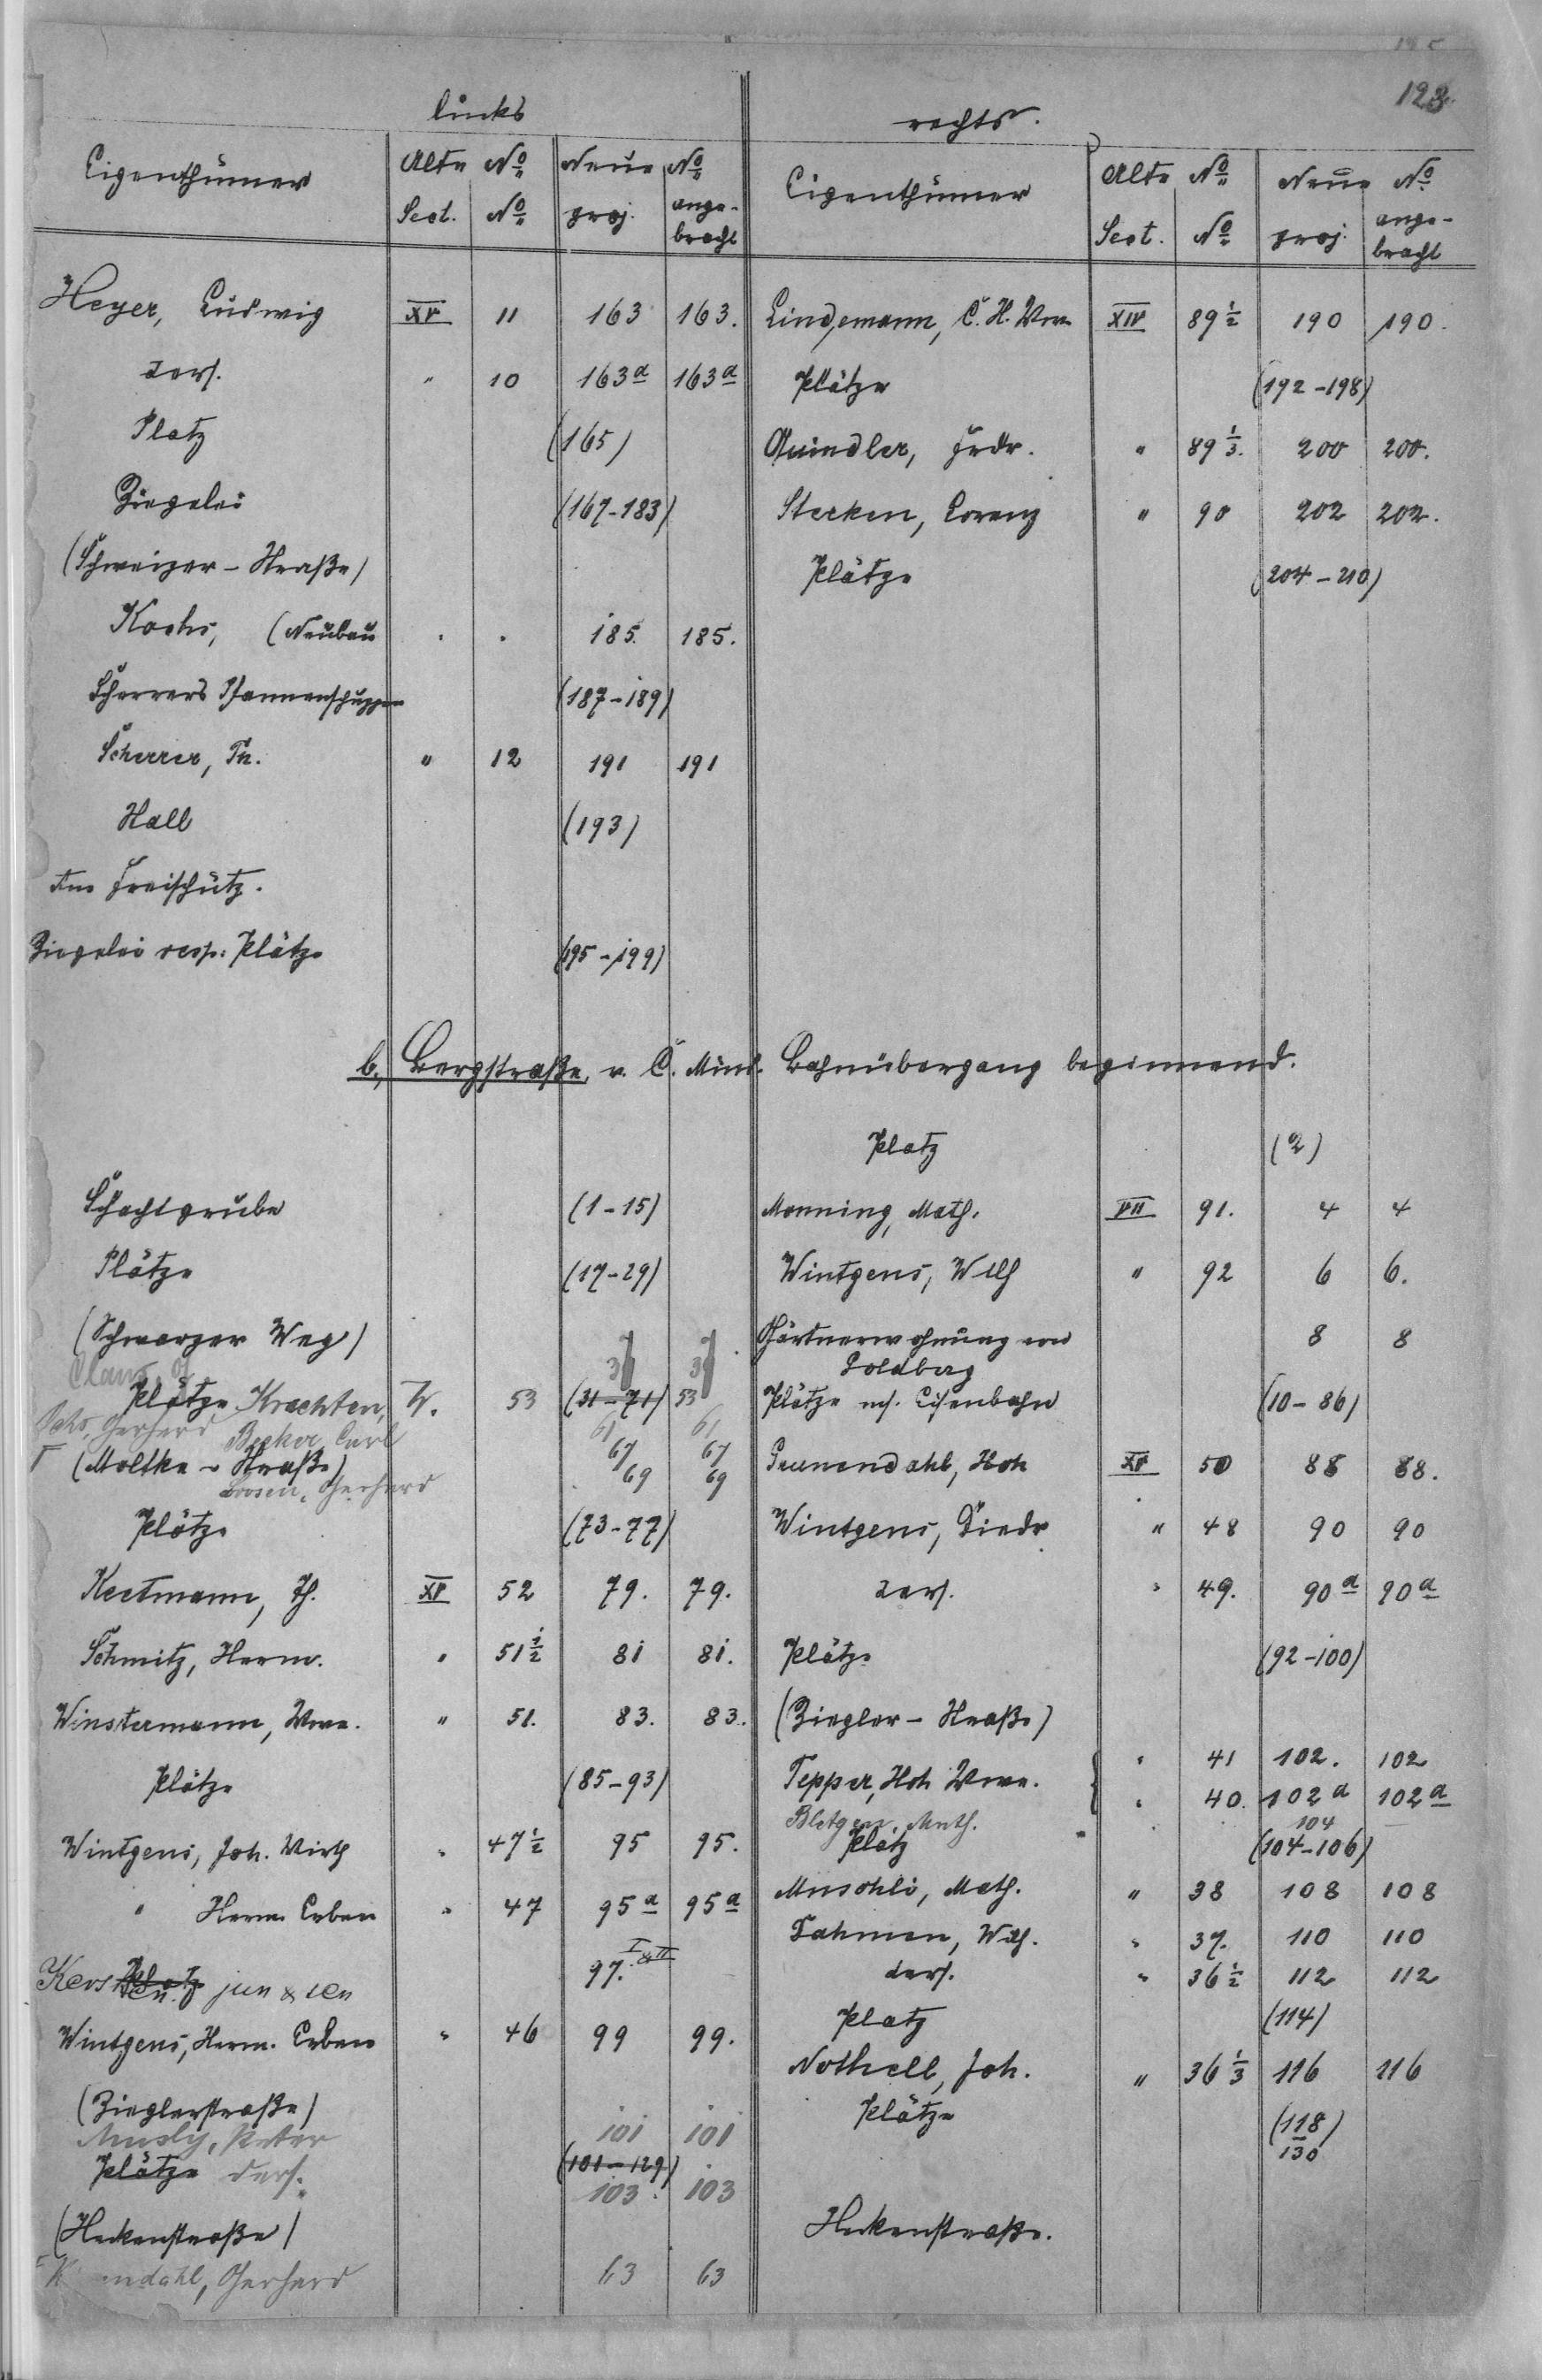 123
links
rechts.
Eigenthümer Alte No Neue No Eigenthümer Alte No Neue No
Sect. No proj. ange- Sect. No proj. ange-
bracht bracht
Heyer, Ludwig XV 11 163 163. Lindemann, C. H. Wwe XIV 89 1/2 190 190.
ders. " 10 163a 163a Plätze (192-198)
Platz (165) Quindler, Frdr. " 89 1/3. 200 200.
Ziegelei (167-183) Sterken, Lorenz " 90 202 202.
(Schweizer-Straße) Plätze (204-210)
Kochs, (Neubau . . 185. 185.
Scherrers Pfannenschuppen (187-189)
Scherrer, Th. " 12 191 191
Hall (193)
Am Freischütz.
Ziegelei resp: Plätze (195-199)
b, Bergstraße, v. C. Mind. Bahnübergang beginnend.
Platz (2)
Schachtgrube (1-15) Monning, Math. VII 91. 4 4
Plätze (17-29) Wintgens, Wilh " 92 6 6.
(Schwarzer Weg) 37 37 Gärtnerwohnung von 8 8
Goldberg
Plätze Krechten, W. 53 (31-71) 53 Plätze resp. Eisenbahn (10-86)
Gerhard 61 61
Becker Carl 67 67
(Moltke-Straße) 69 69 Grunendahl, Hch XV 50 88 88.
Gerhard
Plätze (73-77) Wintgens, Diedr " 48 90 90
Keetmann, Th. XV 52 79. 79. ders. " 49. 90a 90a
Schmitz, Herm. " 51 1/2 81 81. Plätze (92-100)
Winstermann, Wwe. " 51. 83. 83. (Ziegler-Straße)
Plätze (85-93) Tepper, Hch Wwe. { " 41 102. 102
" 40. 102a 102a
Bletgens, Math. 104
Wintgens, Joh. Wirth " 47 1/2 95 95. Platz (104-106)
" Herm. Erben " 47 95a 95a Musohli, Math. " 38 108 108
Tahmen, Wilh. " 37. 110 110
Kersten jun & sen Platz 97. I & II ders. " 36 1/2 112 112
Wintgens, Herm. Erben " 46 99 99. Platz (114)
Nothell, Joh. " 36 1/3 116 116
(Zieglerstraße) Plätze (118
Peter 101 101 130)
Plätze ders. (101-129)
103. 103
(Heckenstraße) Heckenstraße.
ndahl, Gerhard 63 63